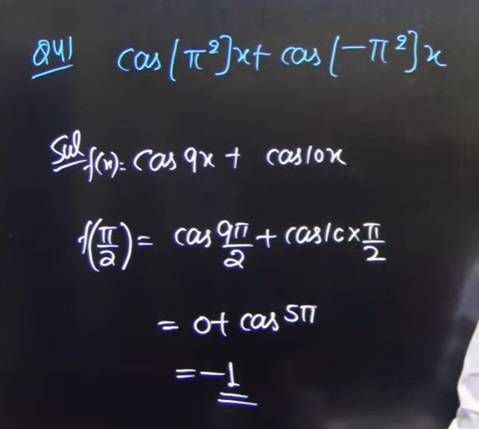 Q41 cos[π²]x + cos[-π²]x
Sol f(x) = cos 9x + cos 10x
f(π/2) = cos 9π/2 + cos 10 × π/2
= 0 + cos 5π
= -1